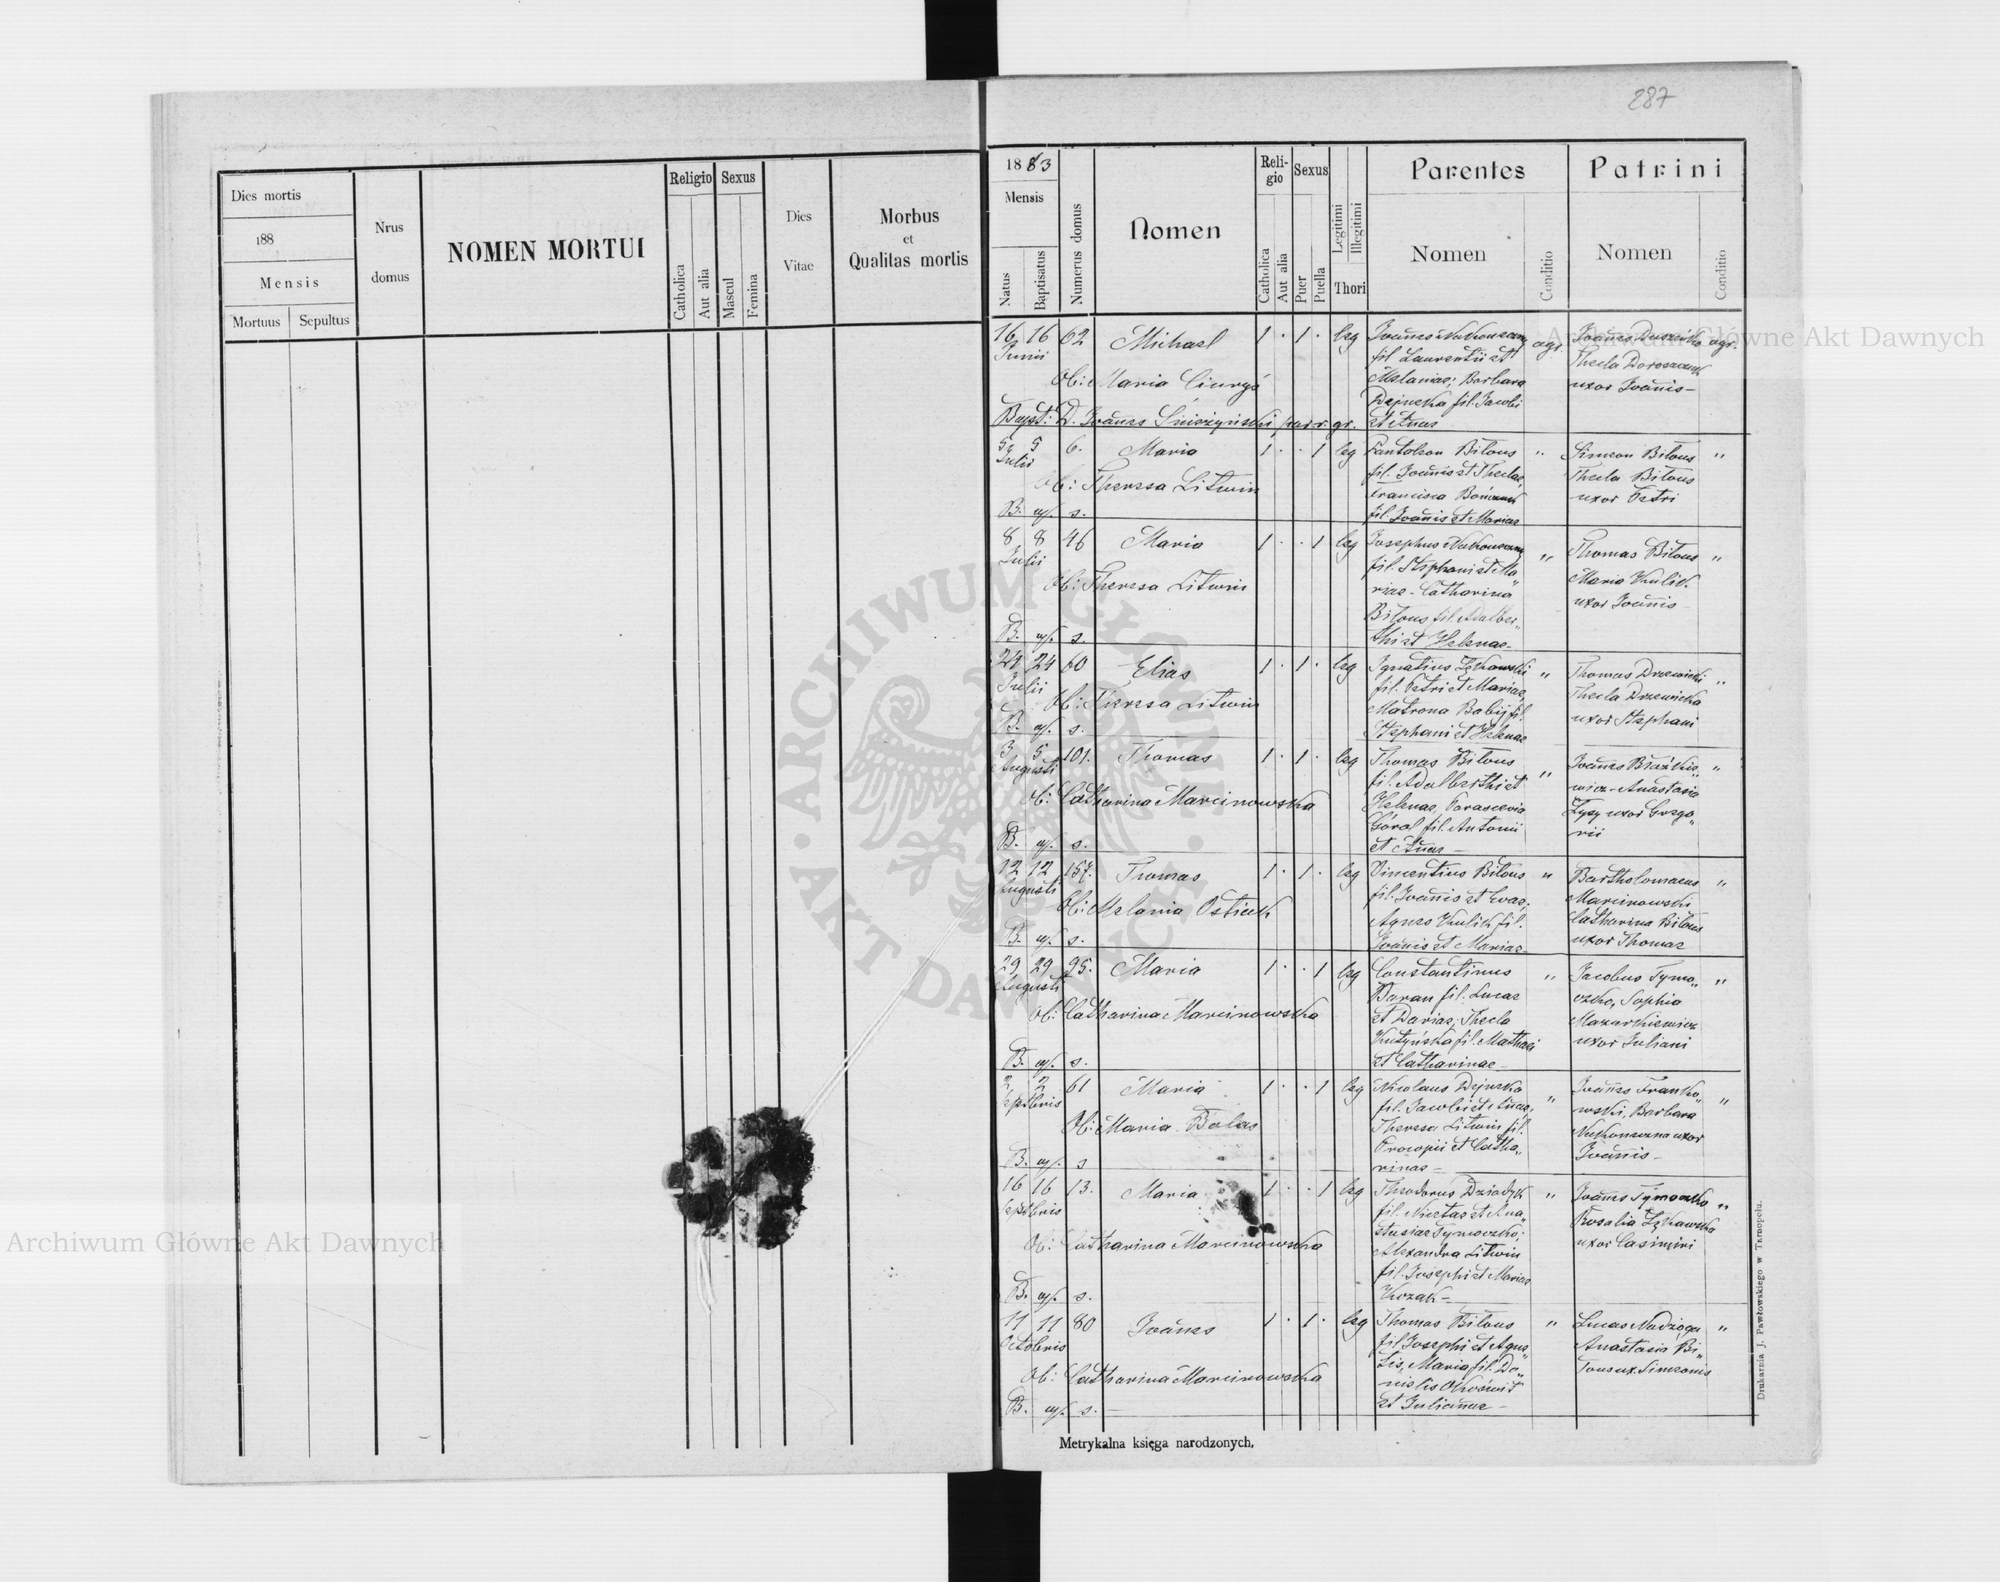 287
Dies mortis
188
Mensis
Mortuus Sepultus
Nrus
domus
NOMEN MORTUI
Religio
Catholica
Aut alia
Sexus
Mascul
Femina
Dies
Vitae
Morbus
et
Qualitas mortis
1883
Mensis
Natus
Baptisatus
Numerus domus
Nomen
Reli-
gio
Catholica
Aut alia
Sexus
Puer
Puella
Legitimi
Illegitimi
Thori
Parentes
Nomen
Conditio
Patrini
Nomen
Conditio
16 16 62 Michael 1 . 1 . leg
Junii
Ob: Maria
Bapt: D. Joannes par. gr.
fil. Laurentii et
Melaniae; Barbara
fil. Jacobi
et Annae
agr.
Thecla
uxor Joannis –
agr.
5 5 6. Maria 1 . . 1 leg
Julii
Ob: Theresa Litwin
B. us. s.
Pantaleon Bilous
fil. Joannis et Theclae,
Francisca
fil. Joannis et Mariae
Simeon Bilous "
Thecla Bilous
uxor Petri
8 8 46 Maria 1 . . 1 leg
Julii
Ob: Theresa Litwin
B. us. s.
Josephus
fil. Stephani et Ma„
riae – Catharina
Bilous fil. Adalber„
thi et Helenae –
Thomas Bilous "
Maria Kulik
uxor Joannis
24 24 60 Elias 1 . 1 . leg
Julii
Ob: Theresa Litwin
B. us. s.
Ignatius Łękawski
fil. Petri et Mariae,
Matrona Babij fil.
Stephani et Helenae
Thomas Drzewicki "
Thecla Drzewicka
uxor Stephani
3 5 101. Thomas 1 . 1 . leg
Augusti
Ob: Catharina Marcinowska
B. us. s.
Thomas Bilous
fil. Adalberthi et
Helenae, Parascevia
Góral fil. Antonii
et Annae –
wicz – Anastasia
Łysy uxor Grego„
rii
12 12 157. Thomas 1 . 1 . leg
Augusti
Ob: Melania
B. us. s.
Vincentius Bilous
fil. Joannis et Evae;
Agnes Kulik fil.
Joannis et Mariae –
Bartholomaeus "
Marcinowski
Catharina Bilous
uxor Thomae
29 29 95. Maria 1 . . 1 leg
Augusti
Ob: Catharina Marcinowska
B. us. s.
Constantinus
Baran fil. Lucae
et Dariae; Thecla
fil. Mathaei
et Catharinae –
Jacobus Tymo„
czko, Sophia
Mazurkiewicz
uxor Juliani
2 2 61 Maria 1 . . 1 leg
Septbris
Ob: Maria Balas
B. us. s
Nicolaus
fil. Jacobi et Annae,
Theresa Litwin fil.
Procopii et Catha„
rinae –
Joannes Franko„
wski, Barbara
uxor
Joannis –
16 16 13. Maria 1 . . 1 leg
Septbris
Ob: Catharina Marcinowska
B. us. s.
Theodorus Dziadyk
fil. Nicetae et Ana„
stasiae Tymoczko;
Alexandra Litwin
fil. Josephi et Mariae
Kozak –
Joannes Tymoczko "
Rosalia Łękawska
uxor Casimiri
11 11 80 Joannes 1 . 1 . leg
Octobris
Ob: Catharina Marcinowska
B. us. s. –
Thomas Bilous
fil. Josephi et Agne„
tis, Maria fil. Da„
nielis
et Julianae –
Lucas "
Anastasia Bi„
lous ux. Simeonis
Metrykalna księga narodzonych,
Drukarnia J. Pawłowskiego w Tarnopolu.
Archiwum Główne Akt Dawnych
Archiwum Główne Akt Dawnych
ARCHIWUM GŁÓWNE AKT DAWNYCH